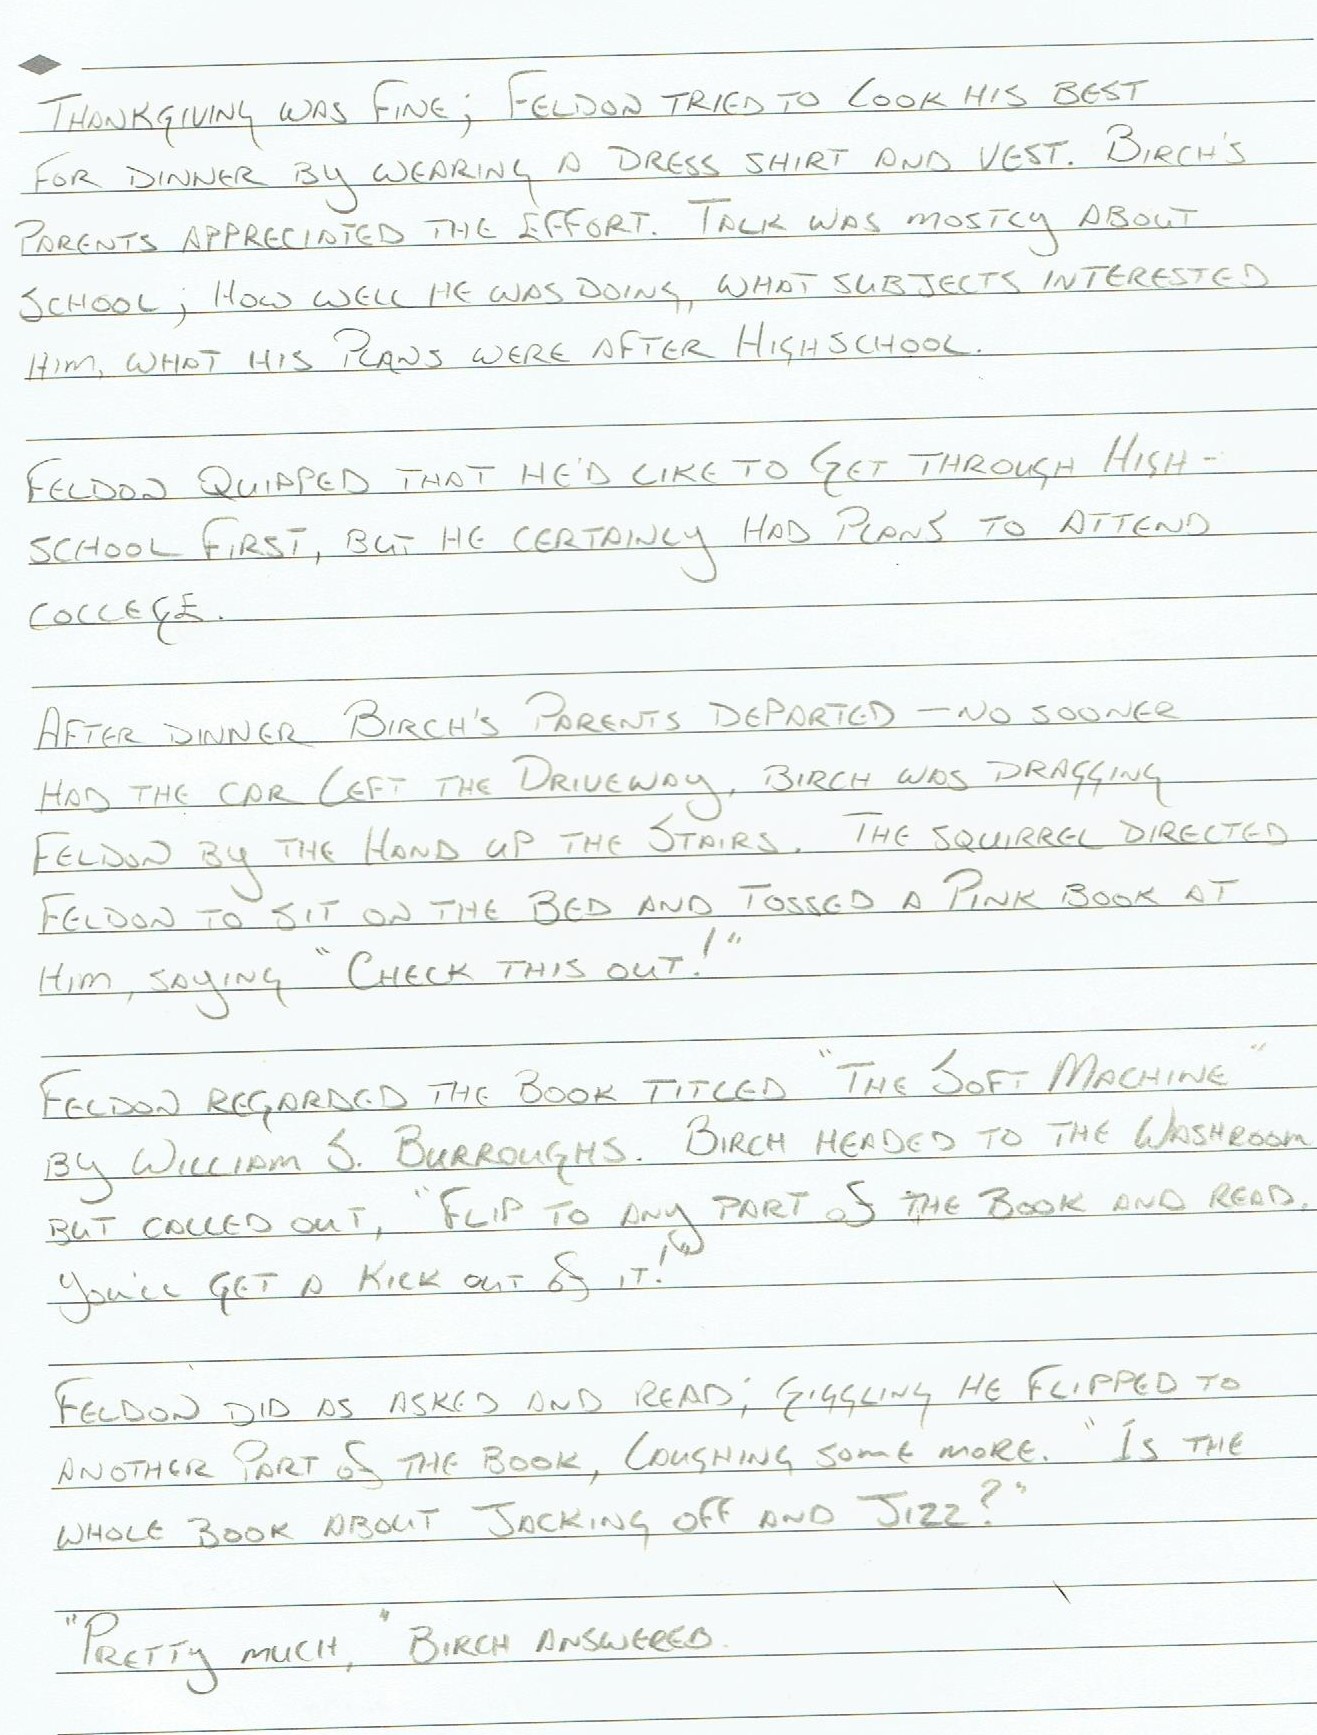 Thankgiving was fine; Feldon tried to look his best
for dinner by wearing a dress shirt and vest. Birch's
parents appreciated the effort. Talk was mostly about
school; how well he was doing, what subjects interested
him, what his plans were after highschool.
Feldon quipped that he'd like to get through high-
school first, but he certainly had plans to attend
college.
After dinner Birch's parents departed — no sooner
had the car left the driveway, Birch was dragging
Feldon by the hand up the stairs. The squirrel directed
Feldon to sit on the bed and tossed a pink book at
him, saying "Check this out!"
Feldon regarded the book titled "The Soft Machine"
by William S. Burroughs. Birch headed to the washroom
but called out, "Flip to any part of the book and read.
You'll get a kick out of it!"
Feldon did as asked and read; giggling he flipped to
another part of the book, laughing some more. "Is the
whole book about jacking off and jizz?"
"Pretty much," Birch answered.